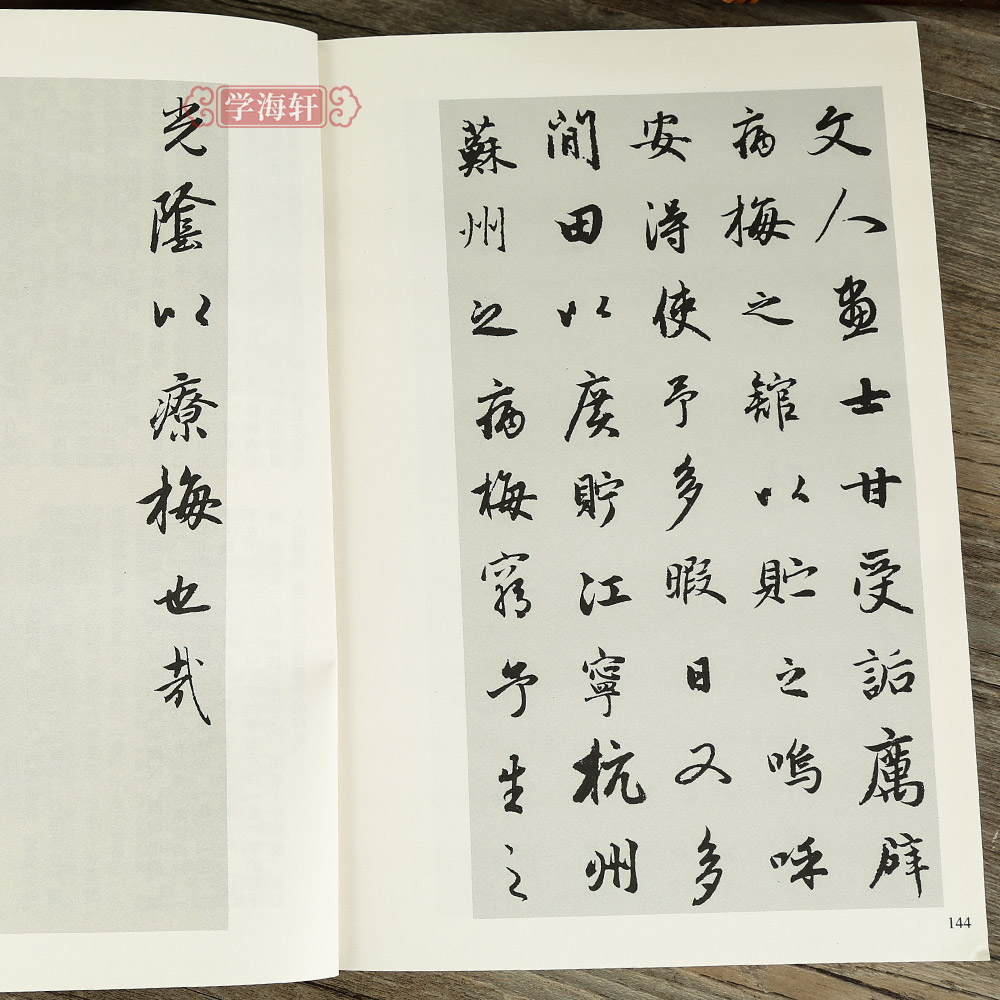 学海轩
文人畫士甘受詬厲辟
病梅之館以貯之嗚呼
安得使予多暇日又多
閒田以廣貯江寧杭州
蘇州之病梅窮予生之
光陰以療梅也哉
144